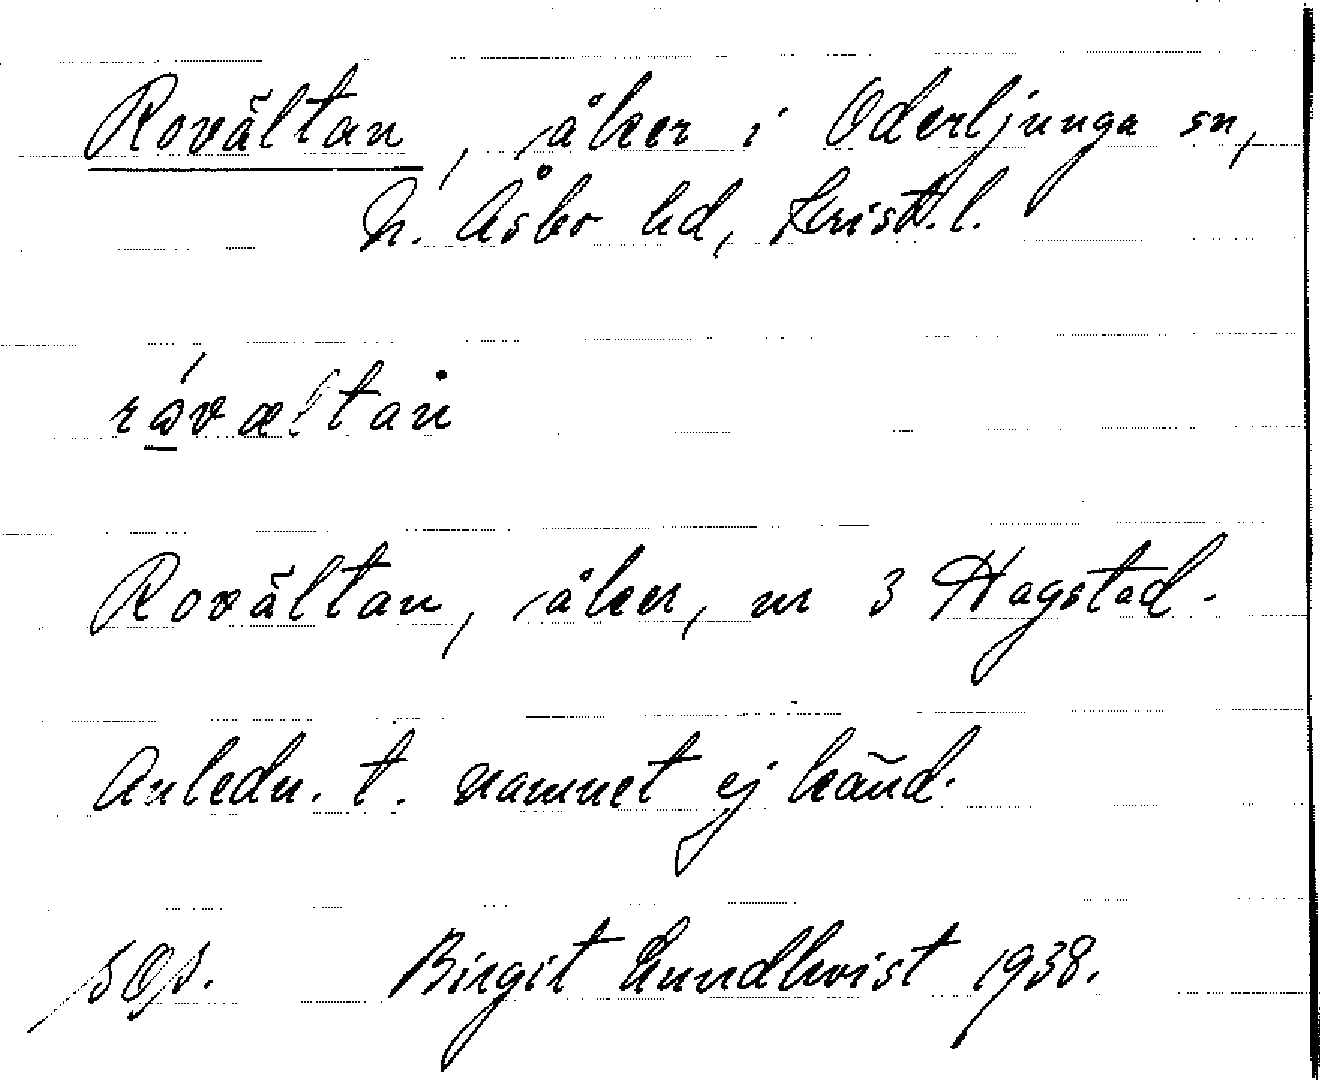 Rovältan, åker i Oderljunga sn,
N. Åsbo hd, Krist. l.
rovæltan
Rovältan, åker, nr 3 Hagstad.
Anledn. t. namnet ej känd.
Birgit Lundkvist 1938.